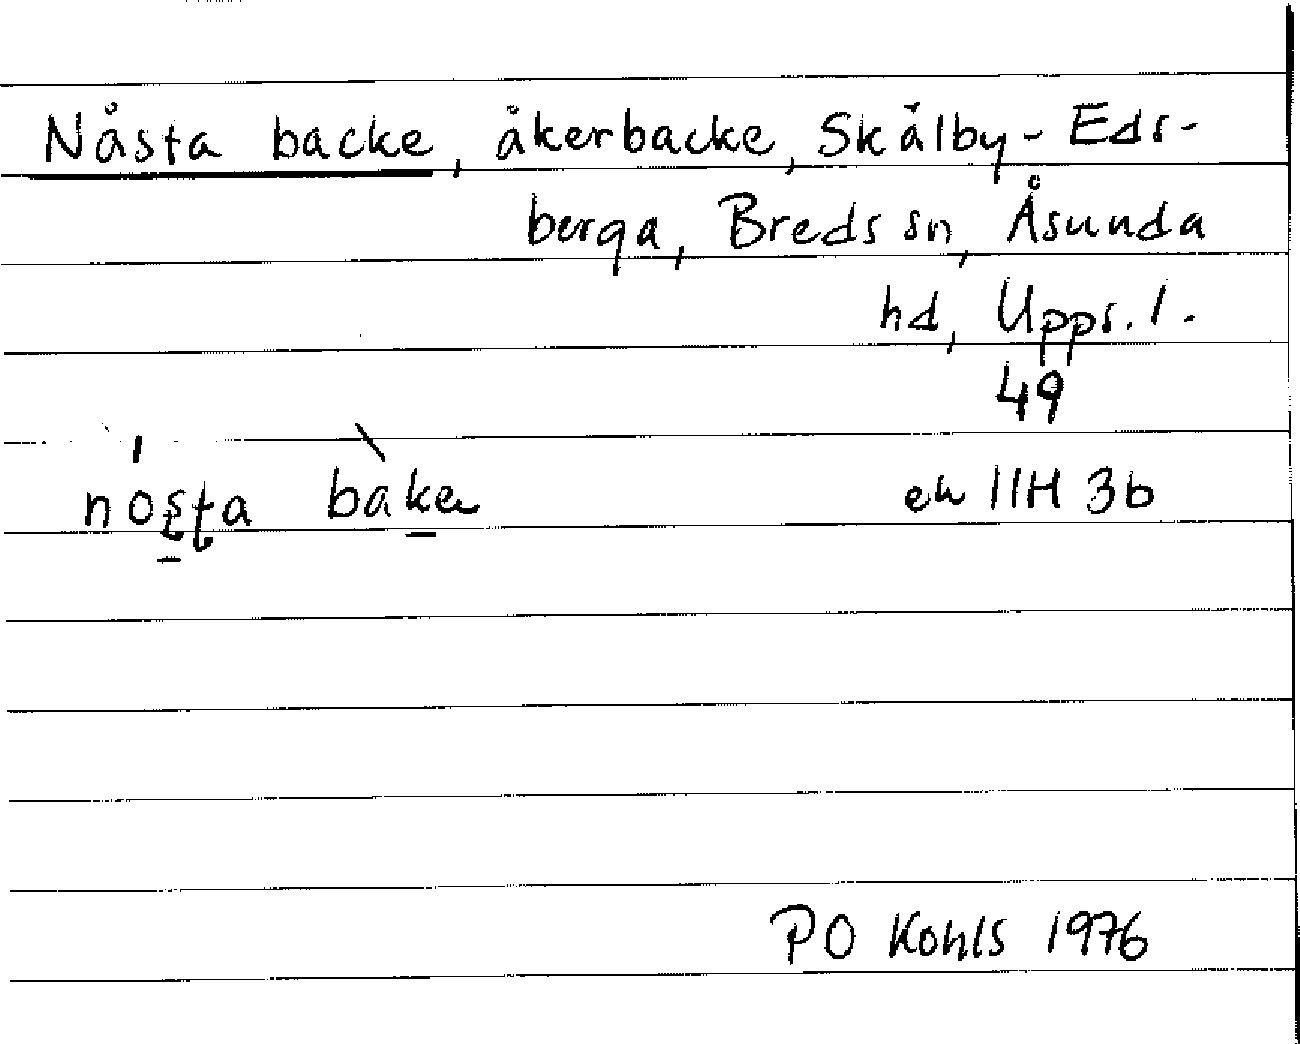 Nåsta backe, åkerbacke, Skålby-Eds-
berga, Breds sn, Åsunda
hd, Upps. l.
49
nosta bake ek 11H 3b
PO Kohls 1976